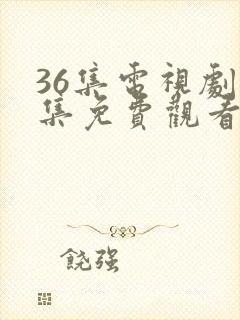 36集電視劇
集免費觀看
饒强